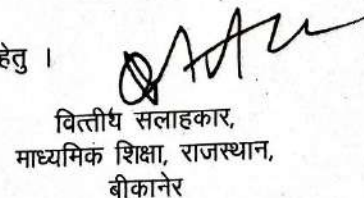 हेतु ।
वित्तीय सलाहकार,
माध्यमिक शिक्षा, राजस्थान,
बीकानेर